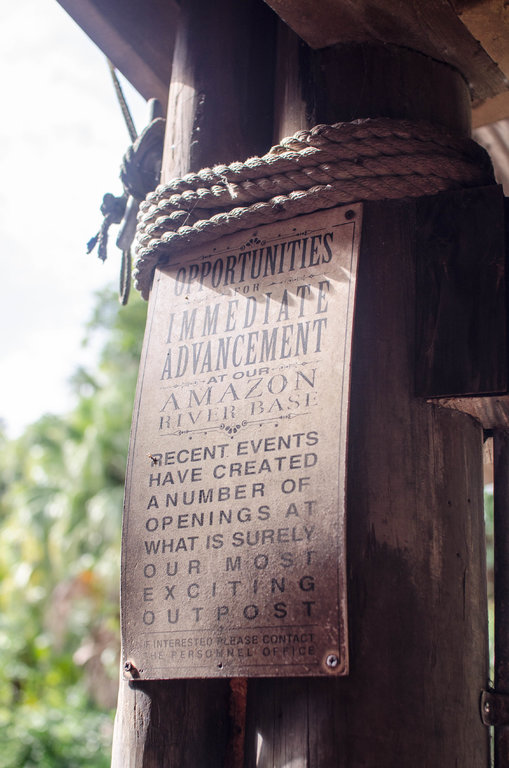 OPPORTUNITIES
FOR
IMMEDIATE
ADVANCEMENT
AT OUR
AMAZON
RIVER BASE
RECENT EVENTS
HAVE CREATED
A NUMBER OF
OPENINGS AT
WHAT IS SURELY
OUR MOST
EXCITING
OUTPOST
IF INTERESTED PLEASE CONTACT
THE PERSONNEL OFFICE